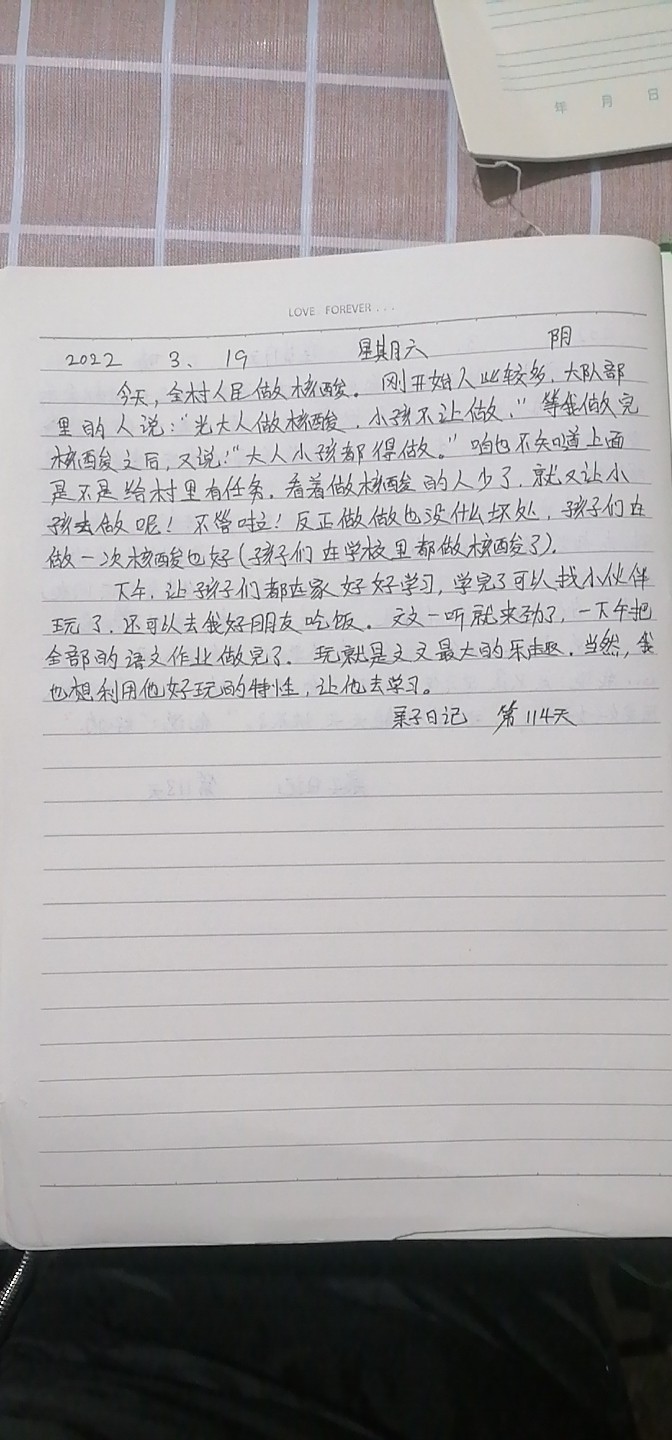 年 月 日
LOVE FOREVER...
2022 3、19 星期六 阴
今天，全村人民做核酸。刚开始人比较多，大队部
里的人说：“光大人做核酸，小孩不让做，”等我做完
核酸之后，又说：“大人小孩都得做。”咱也不知道上面
是不是给村里有任务，看着做核酸的人少了，就又让小
孩去做呢！不管啦！反正做做也没什么坏处，孩子们在
做一次核酸也好（孩子们在学校里都做核酸了）．
下午，让孩子们都在家好好学习，学完了可以找小伙伴
玩了，还可以去我好朋友吃饭。文文一听就来劲了，一下午把
全部的语文作业做完了．玩就是文文最大的乐趣．当然，我
也想利用他好玩的特性，让他去学习。
亲子日记 第114天